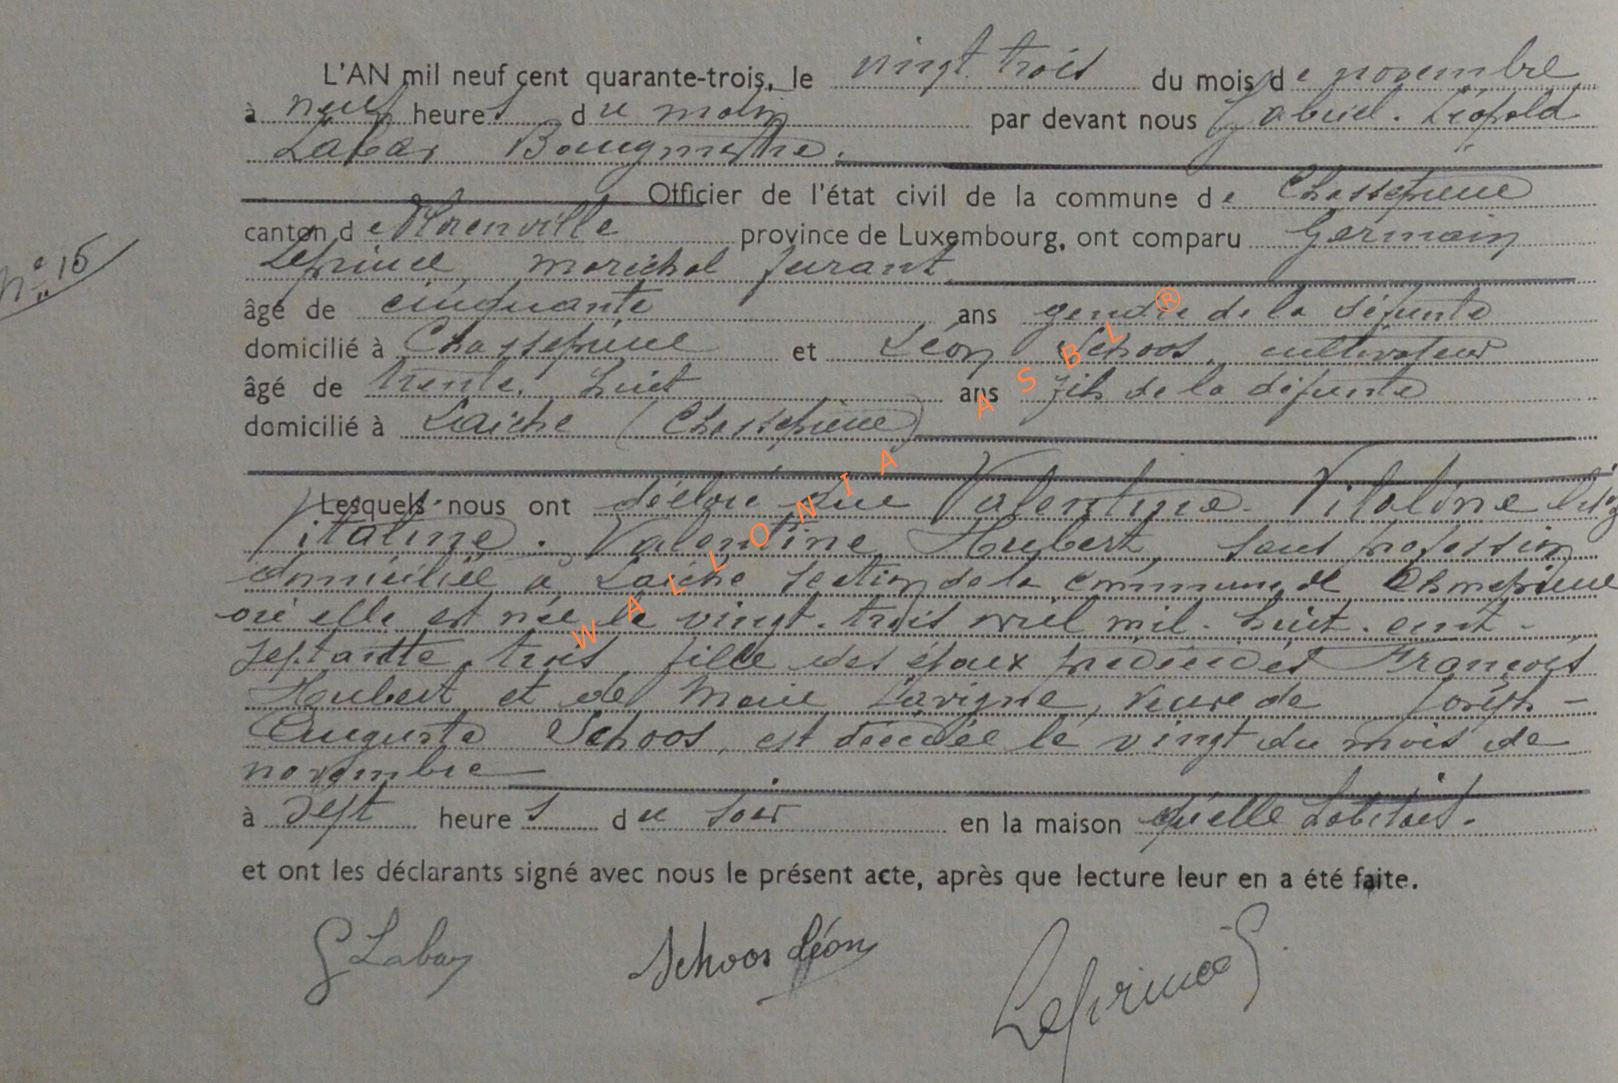 L'AN mil neuf cent quarante-trois, le vingt trois du mois de novembre
à neuf heures du matin par devant nous Gabriel. Léopold
Labay Bourgmestre.
Officier de l'état civil de la commune de Chassepierre
canton de Florenville province de Luxembourg, ont comparu Germain
Leprince, maréchal ferrant
N° 15
âgé de cinquante ans gendre de la défunte
domicilié à Chassepierre et Léon Schoos, cultivateur
âgé de trente. huit ans fils de la défunte
domicilié à Laiche (Chassepierre)
Lesquels nous ont déclaré que Valentine. Vitaline
Vitaline. Valentine Hubert, sans profession
domiciliée à Laiche section de la commune de Chassepierre
où elle est née le vingt. trois avril mil. huit. cent-
septante. trois, fille des époux prédécédés François
Hubert et de Marie Lavigne, veuve de Joseph-
Auguste Schoos, est décédée le vingt du mois de
novembre
à sept heures du soir en la maison qu'elle habitait.
et ont les déclarants signé avec nous le présent acte, après que lecture leur en a été faite.
G Labay Schoos Léon Leprince G
WALLONIA ASBL ®